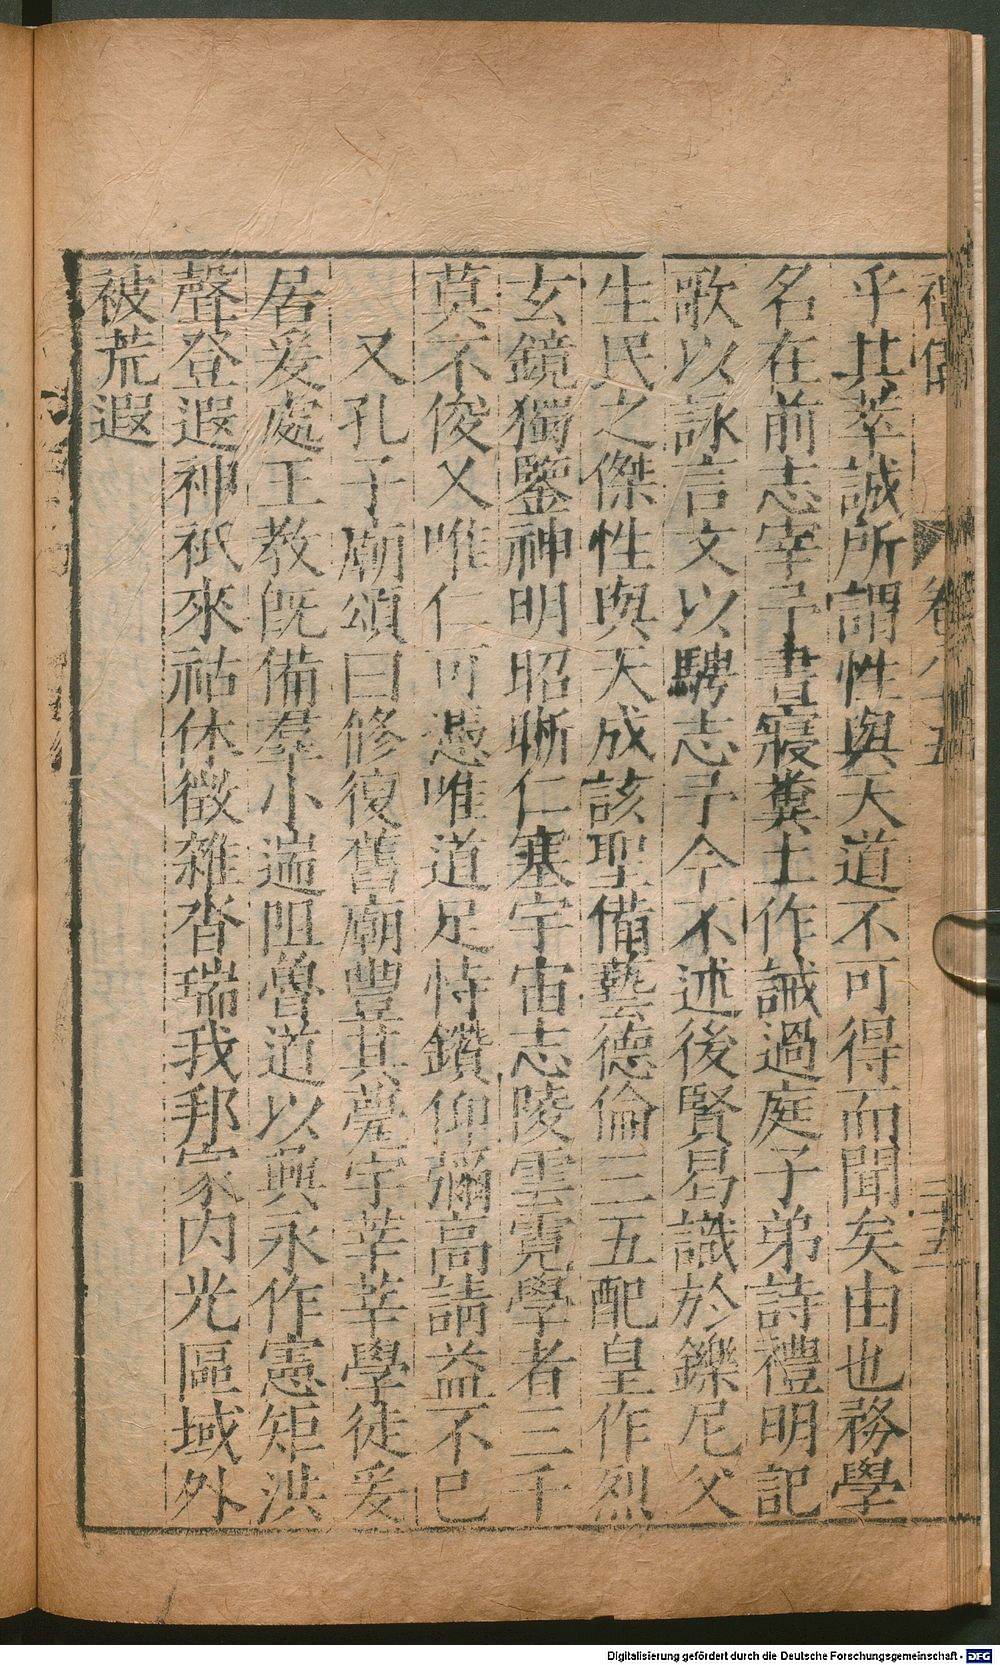 乎其萃誠所謂性與天道不可得而聞矣由也務學
名在前志宰予晝寢糞土作誡過庭子弟詩禮明記
歌以詠言文以騁志予今不述後賢曷識於鑠尼父
生民之傑性與天成該聖備藝德倫三五配皇作烈
玄鏡獨鑒神明昭晰仁塞宇宙志陵雲霓學者三千
莫不俊乂唯仁可憑唯道足恃鑽仰彌高請益不已
又孔子廟頌曰修復舊廟豐其甍宇莘莘學徒爰
居爰處王教旣備羣小遄阻魯道以興永作憲矩洪
聲登遐神祇來祜休徵雜沓瑞我邦家內光區域外
被荒遐
Digitalisierung gefördert durch die Deutsche Forschungsgemeinschaft - DFG